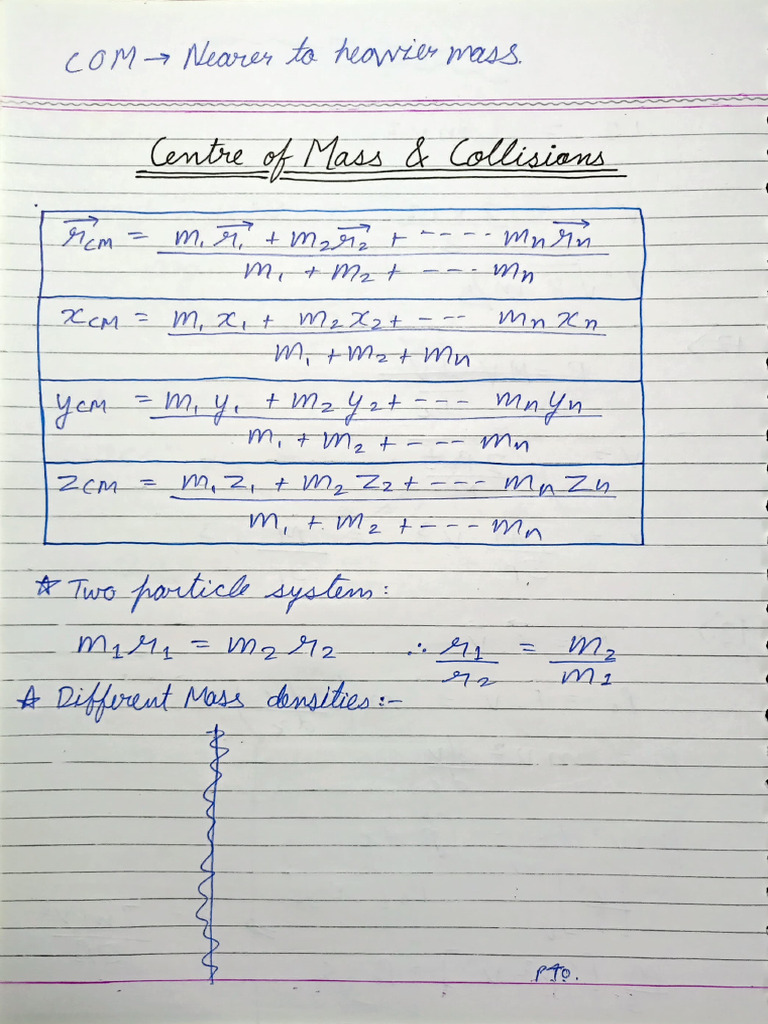 COM → Nearer to heavier mass.
Centre of Mass & Collisions
r⃗CM = m₁r⃗₁ + m₂r⃗₂ + ---- mₙr⃗ₙ
m₁ + m₂ + --- mₙ
xCM = m₁x₁ + m₂x₂ + --- mₙxₙ
m₁ + m₂ + mₙ
yCM = m₁y₁ + m₂y₂ + --- mₙyₙ
m₁ + m₂ + --- mₙ
zCM = m₁z₁ + m₂z₂ + --- mₙzₙ
m₁ + m₂ + --- mₙ
☆ Two particle system:
m₁r₁ = m₂r₂ ∴ r₁/r₂ = m₂/m₁
☆ Different Mass densities:-
PTO.